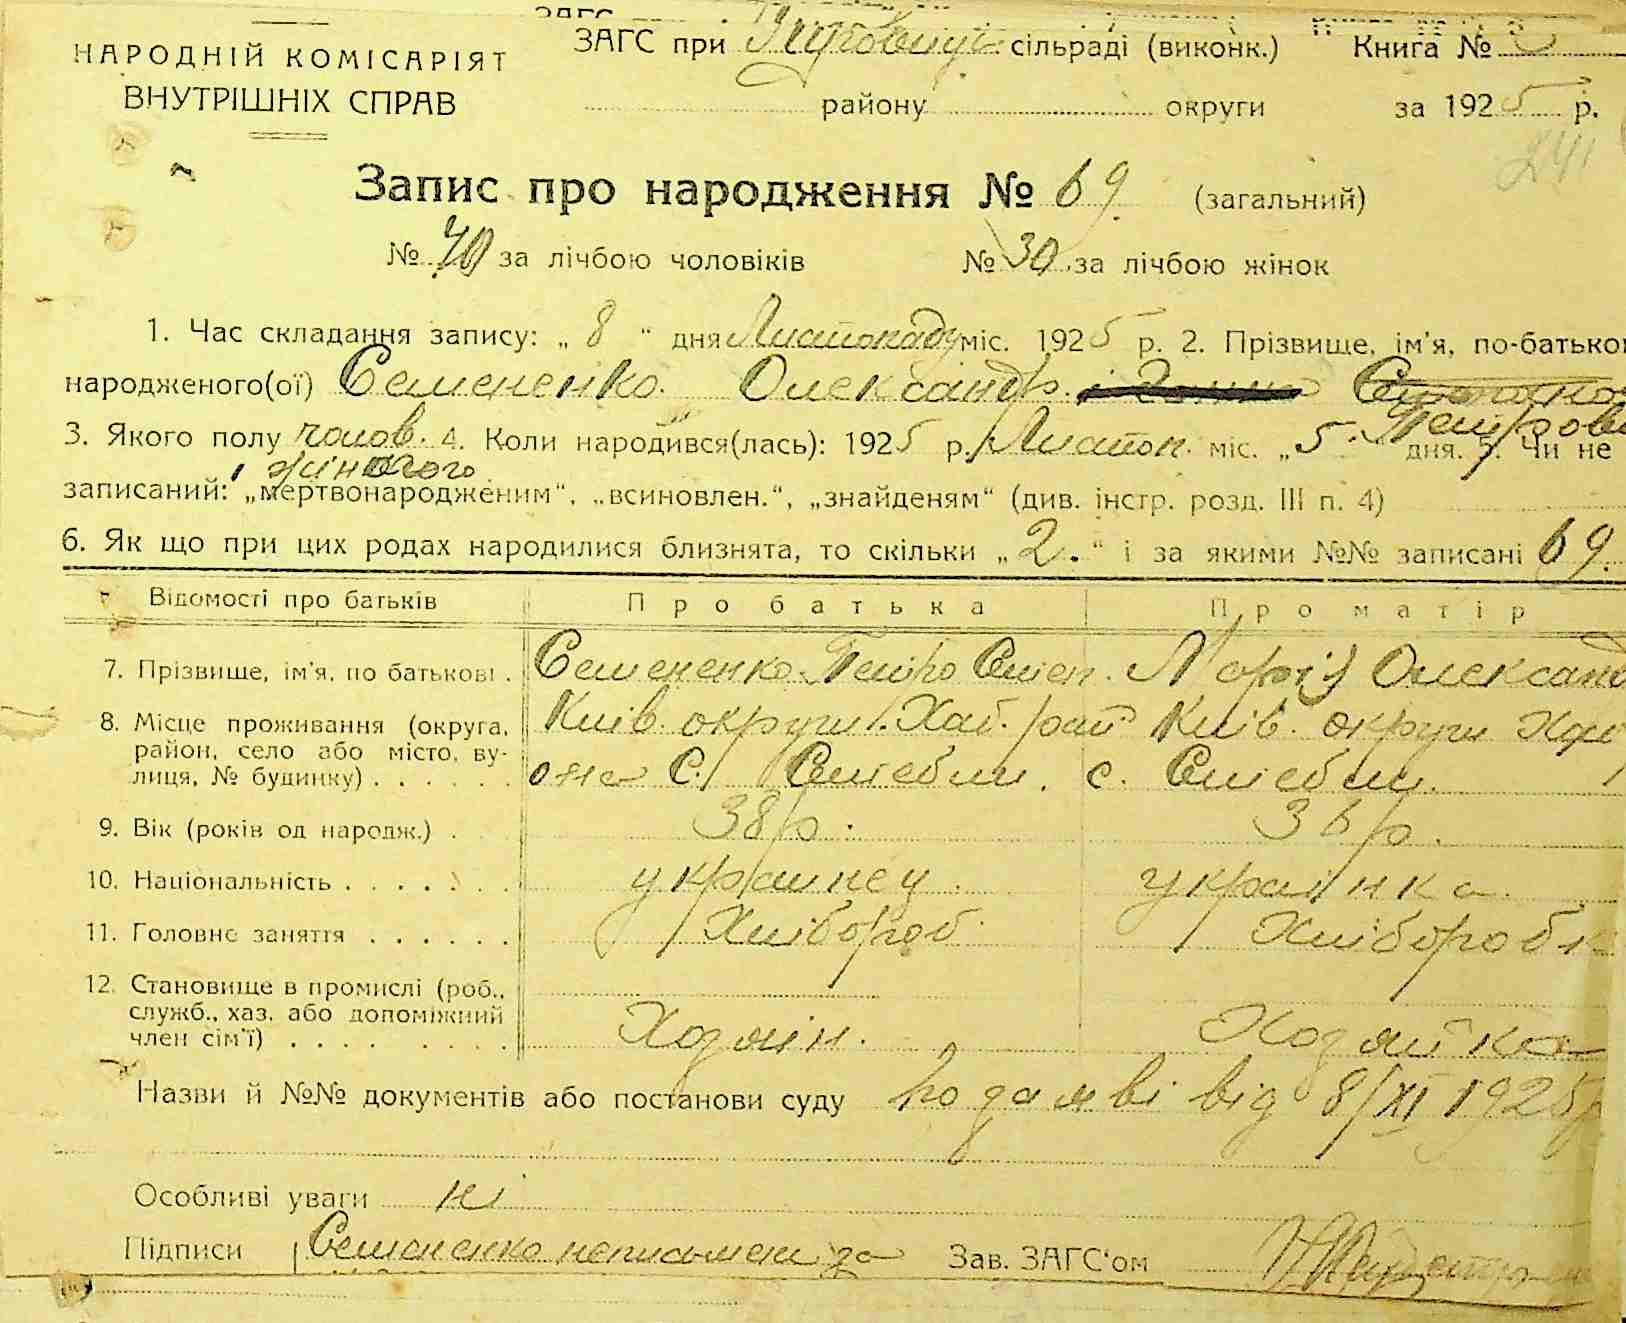 НАРОДНІЙ КОМІСАРІЯТ
ВНУТРІШНІХ СПРАВ
ЗАГС при сільраді (виконк.) Книга №
району округи за 1925 р.
241
Запис про народження № 69. (загальний)
№ 40 за лічбою чоловіків № 30 за лічбою жінок
1. Час складання запису: „ 8 “ дня Листопаду міс. 1925 р. 2. Прізвище, ім'я, по-батькові
народженого(ої) Семененко Олександр.
Петрови
3. Якого полу чолов. 4. Коли народився(лась): 1925 р. Листоп. міс. „ 5. дня. 5. Чи не
і жіночого
записаний: „мертвонародженим“, „всиновлен.“, „знайденям“ (див. інстр. розд. III п. 4)
6. Як що при цих родах народилися близнята, то скільки „ 2. “ і за якими №№ записані 69.
Відомості про батьків Про батька Про матір
7. Прізвище, ім'я, по батькові . Семененко Петро Степ. Марія Олександ
8. Місце проживання (округа, район, село або місто, вулиця, № будинку) . . . . . . Київ. округи. Хаб. рай она с. Київ. округи с.
9. Вік (років од народж.) . 38 р. 36 р.
10. Національність . . . . . . українец. українка
11. Головне заняття . . . . . . Хлібороб Хлібороб
12. Становище в промислі (роб., служб., хаз. або допоміжний член сім'ї) . . . . . . . . Хозяїн. Хозяйка
Назви й №№ документів або постанови суду по заяві від 8/XI 1925 р
Особливі уваги ні
Підписи Семененко неписьмен за Зав. ЗАГС'ом